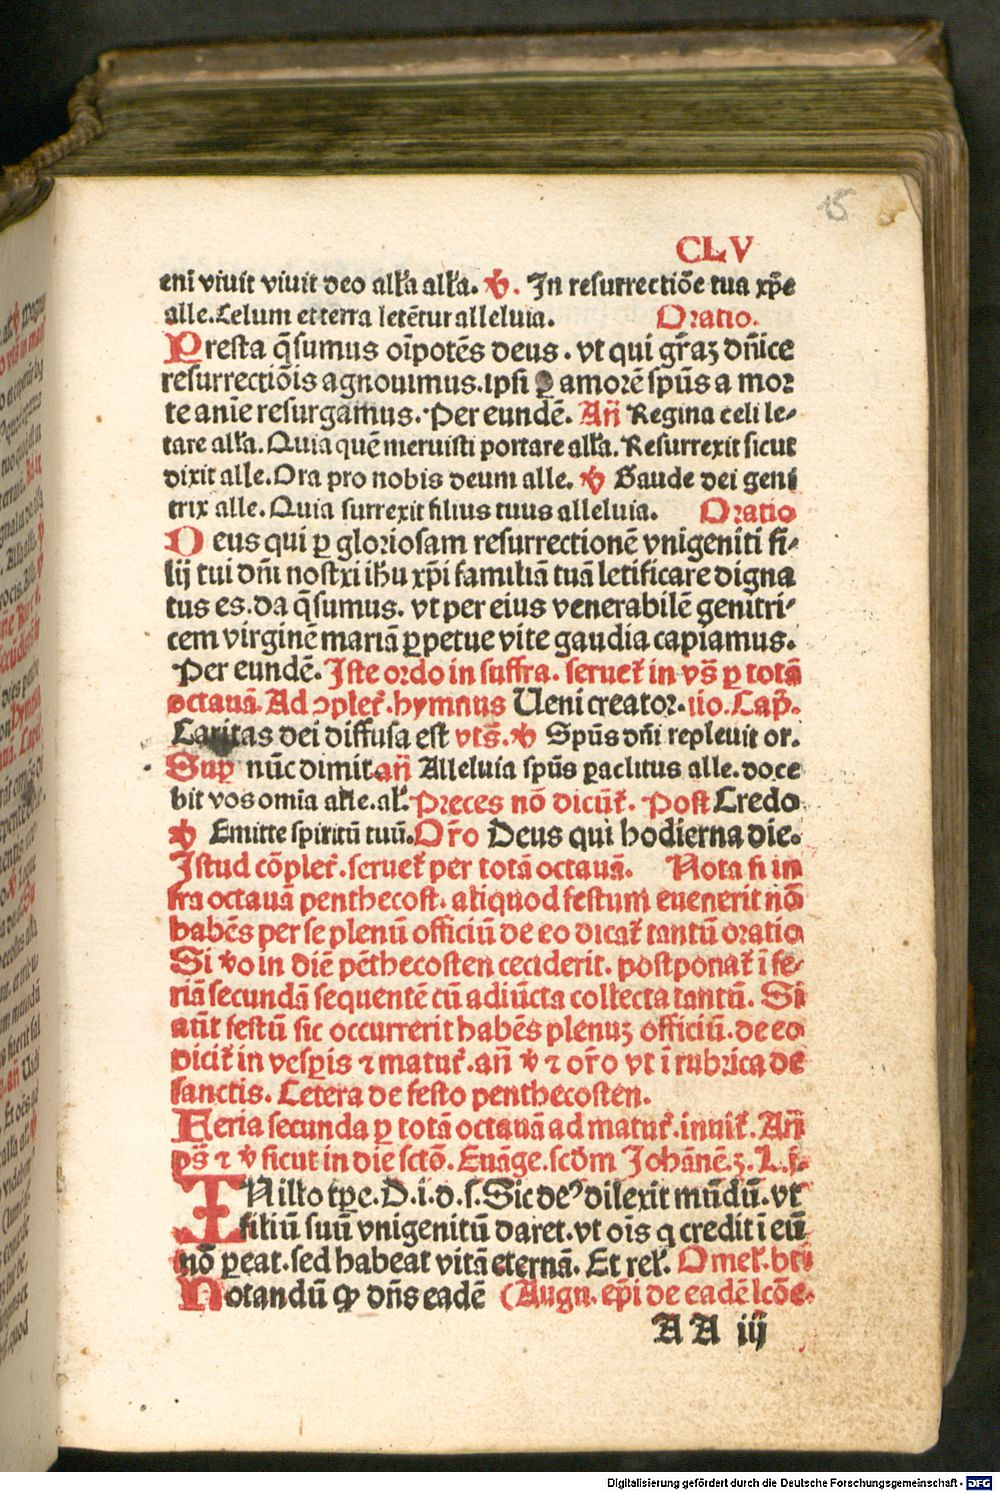 15
CLV
eni vivit vivit deo alľa alľa. ꝟ. In resurrectiōe tua xp̄e
alle. Celum et terra letētur alleluia. Oratio.
Presta q̄sumus oīpotēs deus. vt qui gr̄aʒ dn̄ice
resurrectiōis agnouimus. ipsi ꝑ amorē spūs a mor
te anīe resurgamus. Per eundē. Añ Regina celi le-
tare alľa. Quia quē meruisti portare alľa. Resurrexit sicut
dixit alle. Ora pro nobis deum alle. ꝟ Gaude dei geni
trix alle. Quia surrexit filius tuus alleluia. Oratio
Deus qui ꝑ gloriosam resurrectionē vnigeniti fi-
lij tui dn̄i nostri ihu xp̄i familiā tuā letificare digna
tus es. da q̄sumus. vt per eius venerabilē genitri-
cem virginē mariā ꝑpetue vite gaudia capiamus.
Per eundē. Iste ordo in suffra. seruet̄ in vs̄ ꝑ totā
octauā. Ad ↄplet̄. hymnus Ueni creator. iio. Cap̄.
Caritas dei diffusa est vts̄. ꝟ Spūs dn̄i repleuit or.
Suꝑ nūc dimit. añ Alleluia spūs ꝑaclitus alle. doce
bit vos omia alle. al̄. Preces nō dicūt̄. Post Credo
ꝟ Emitte spiritū tuū. Or̄o Deus qui hodierna die.
Istud cōplet̄. seruet̄ per totā octauā. Nota si in
fra octauā penthecost. aliquod festum euenerit nō
habēs per se plenū officiū de eo dicat̄ tantū oratio
Si ꝟo in diē pēthecosten ceciderit. postponat̄ ī fe-
riā secundā sequentē cū adiūcta collecta tantū. Si
aūt festū sic occurrerit habēs plenuʒ officiū. de eo
dicit̄ in vesꝑis ⁊ matut̄. añ ꝟ ⁊ or̄o vt ī rubrica de
sanctis. Cetera de festo penthecosten.
Feria secunda ꝑ totā octauā ad matut̄. inuit̄. Añ
ps̄ ⁊ ꝟ sicut in die sctō. Euāge. scd̄m Johānē. 3. L. j.
IN illo tp̄e. D. i. d. s. Sic deꝰ dilexit mūdū. vt
filiū suū vnigenitū daret. vt oīs q credit ī eū
nō ꝑeat. sed habeat vitā eternā. Et rel̄. Omel̄. bti
Notandū ꝙ dn̄s eadē (Augn. ep̄i de eadē lcōe.
AA iij
Digitalisierung gefördert durch die Deutsche Forschungsgemeinschaft - DFG